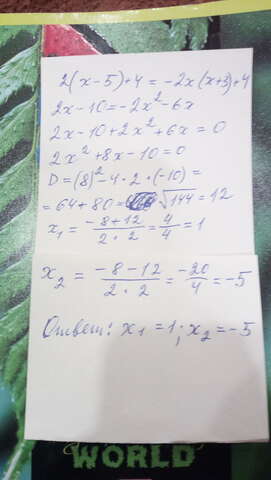 2(x-5)+4=-2x(x+3)+4
2x-10=-2x²-6x
2x-10+2x²+6x=0
2x²+8x-10=0
D=(8)²-4·2·(-10)=
=64+80= √144=12
x₁=(-8+12)/(2·2)=4/4=1
x₂=(-8-12)/(2·2)=-20/4=-5
Ответ: x₁=1; x₂=-5
WORLD